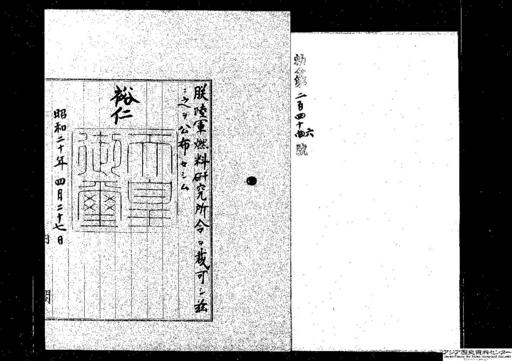 勅令第二百四十六號
朕陸軍燃料研究所令ヲ裁可シ茲
ニ之ヲ公布セシム
裕仁
天皇御璽
昭和二十年四月二十七日
アジア歴史資料センター